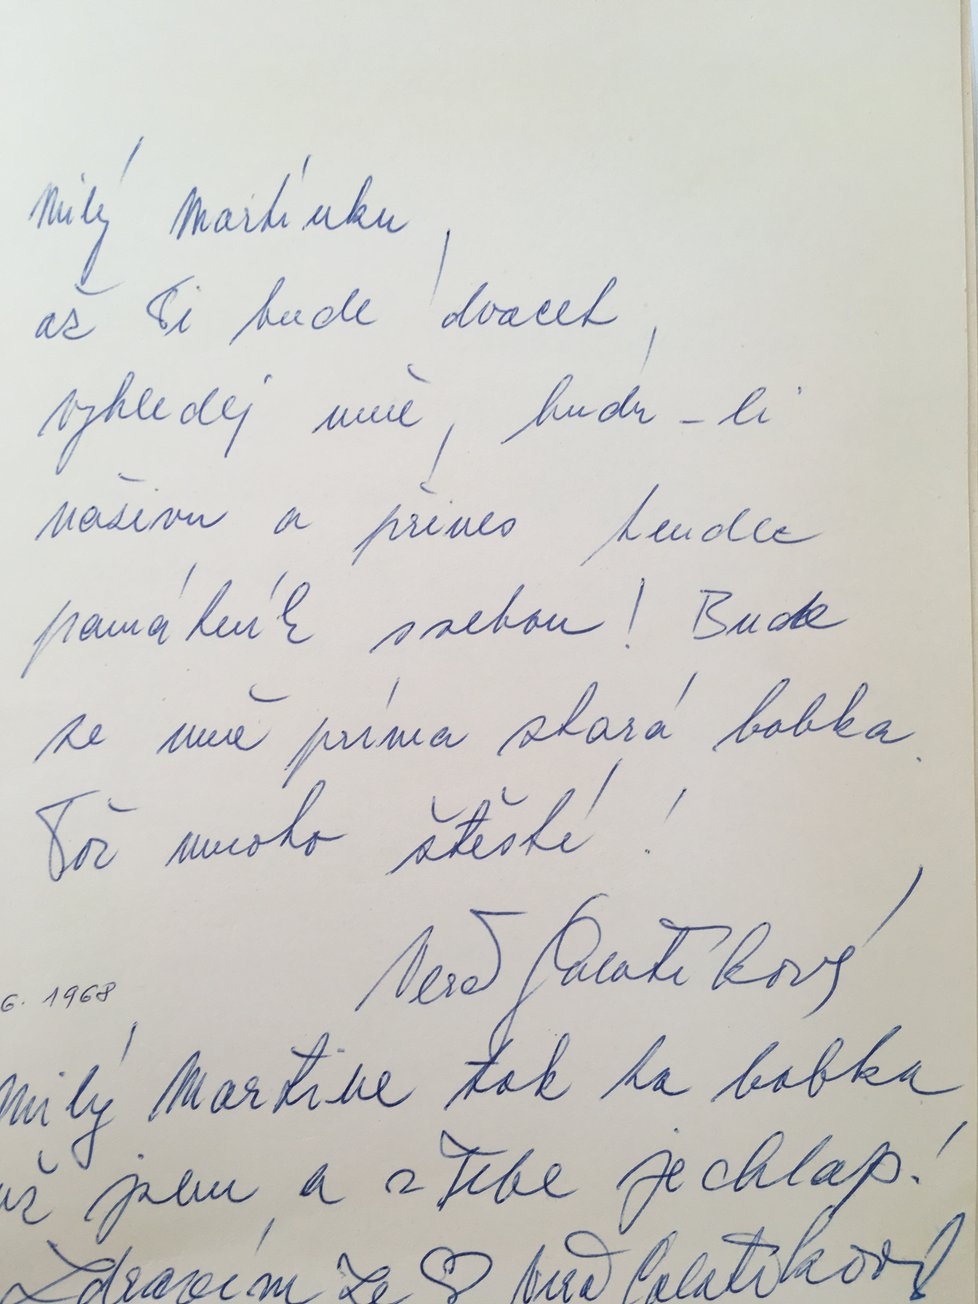 Milý Martínku,
až Ti bude dvacet,
vyhledej mě, budu-li
naživu a přines tendle
památník ssebou! Bude
ze mně príma stará bobka.
Tož mnoho štěstí!
Vera Galatíková
6. 1968
Milý Martine tak ta bobka
už jsem a z Tebe je chlap!
Zdravím ze ♡ Vera Galatíková